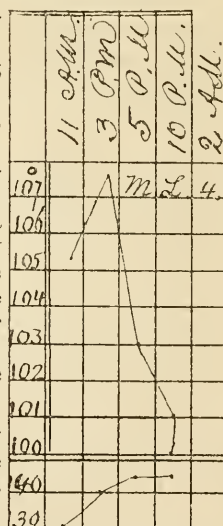 11 A.M.
3 P.M
5 P.M
10 P.M.
2 A.M.
107 M L 4.
106
105
104
103
102
101
100
140
130